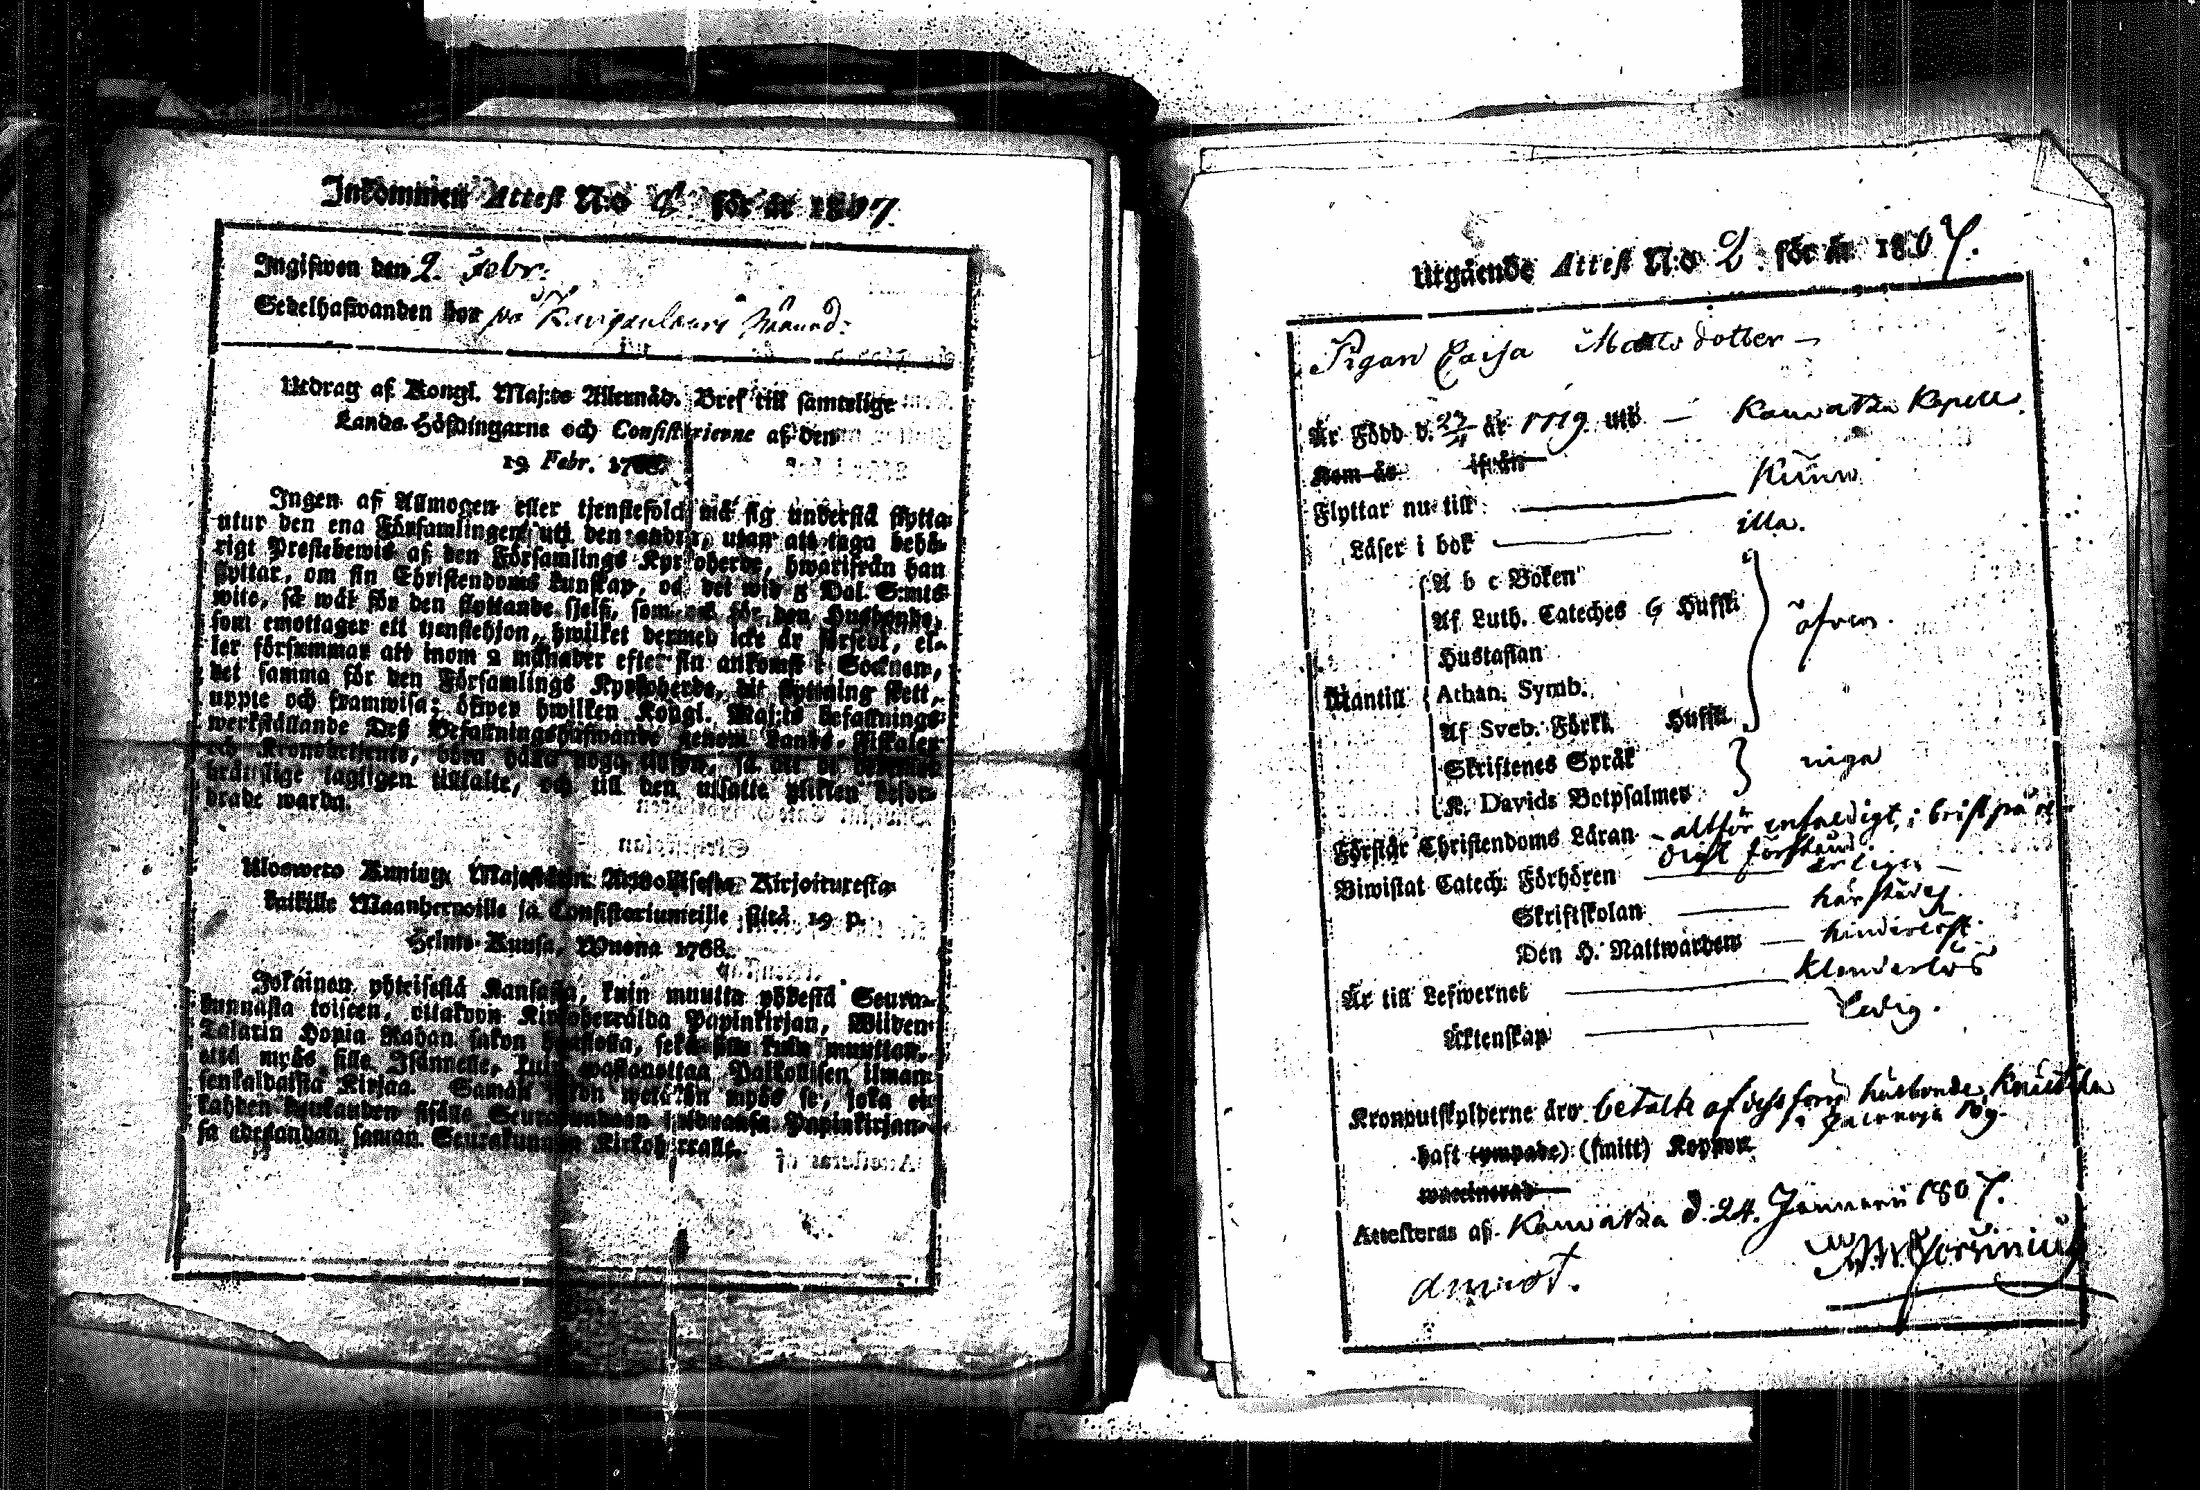 Inkommen Attest N:o 2 för år 1807.
Ingifwen den 2. Febr.
Sedelhafwanden bor på
Utdrag af Kongl. Maj:ts Allernåd. Bref till samtelige
Lands-Höfdingarne och Consistorierne af den
19 Febr. 1768.
Ingen af Allmogen eller tjenstefolck må sig understå flytta
utur den ena Församlingen uti den andra, utan att taga behö-
rigt Prestebewis af den Församlings Kyrkoherde, hwarifrån han
flyttar, om sin Christendoms kunskap, och det wid 5 Dal. S:mts
wite, så wäl för den flyttande sjelf, som ock för den Husbonde,
som emottager ett tjenstehjon, hwilket dermed icke är försedt, el-
ler försummar att inom 2 månader efter sin ankomst i Socknen,
det samma för den Församlings Kyrkoherde, dit flyttning skett,
uppte och framwisa; öfwer hwilken Kongl. Maj:ts befallnings
werkställande Dess Befallningshafwande genom Lands-Fiskaler
och Kronobetjente, böra hålla noga
tagligen tilltalte, och till den utsatte plikten befor-
drade warda.
Ulosweto Kuning. Majestätin Armollisesta Kirjoituresta
kaikille Maanherroille ja Consistoriumeille siitä 19 p.
Helmi-Kuusa, Wuona 1768.
Jokainen yhteisestä Kansasta, kuin muutta yhdestä Seura-
kunnasta toiseen, ottakoon Kirkoherralda Papinkirjan, Wiiden
Talarin Hopia Rahan sakon
että myös sille Isännelle, kuin wastanottaa Palkollisen ilman
senkaldaista Kirjaa. Saman sakon myös se, joka ei
kahden kuukauden sisälla Seurakundaan Papinkirjan-
sa edesandan saman Seurakunnan Kirkoherralle.
Utgående Attest N:o 2. för år 1807.
Pigan Caisa Matts dotter –
Är Född d. 27/4 år 1779. uti — Kauvatsa Kapell.
Kom år ifrån
Flyttar nu till —
Läser i bok — illa.
A b c Boken
Af Luth. Cateches 6 Hufst.
Hustaflan
Utantill Athan. Symb. äfven.
Af Sveb. Förkl. Hufst.
Skriftenes Språk
K. Davids Botpsalmer inga
Förstår Christendoms Läran – altför enfaldigt, i brist på
digt förstånd.
Biwistat Catech. Förhören — årligen –
Skriftskolan — härstädes
Den H. Nattwarden — hindersløst.
Är till Lefwernet — klanderlös
Äktenskap — Ledig.
Kronoutskylderne äro betalte af dess förra husbonde
i By.
haft (ympade) (smitt) Koppor
waccinerad
Attesteras af Kauvatsa d. 24. Januarii 1807.